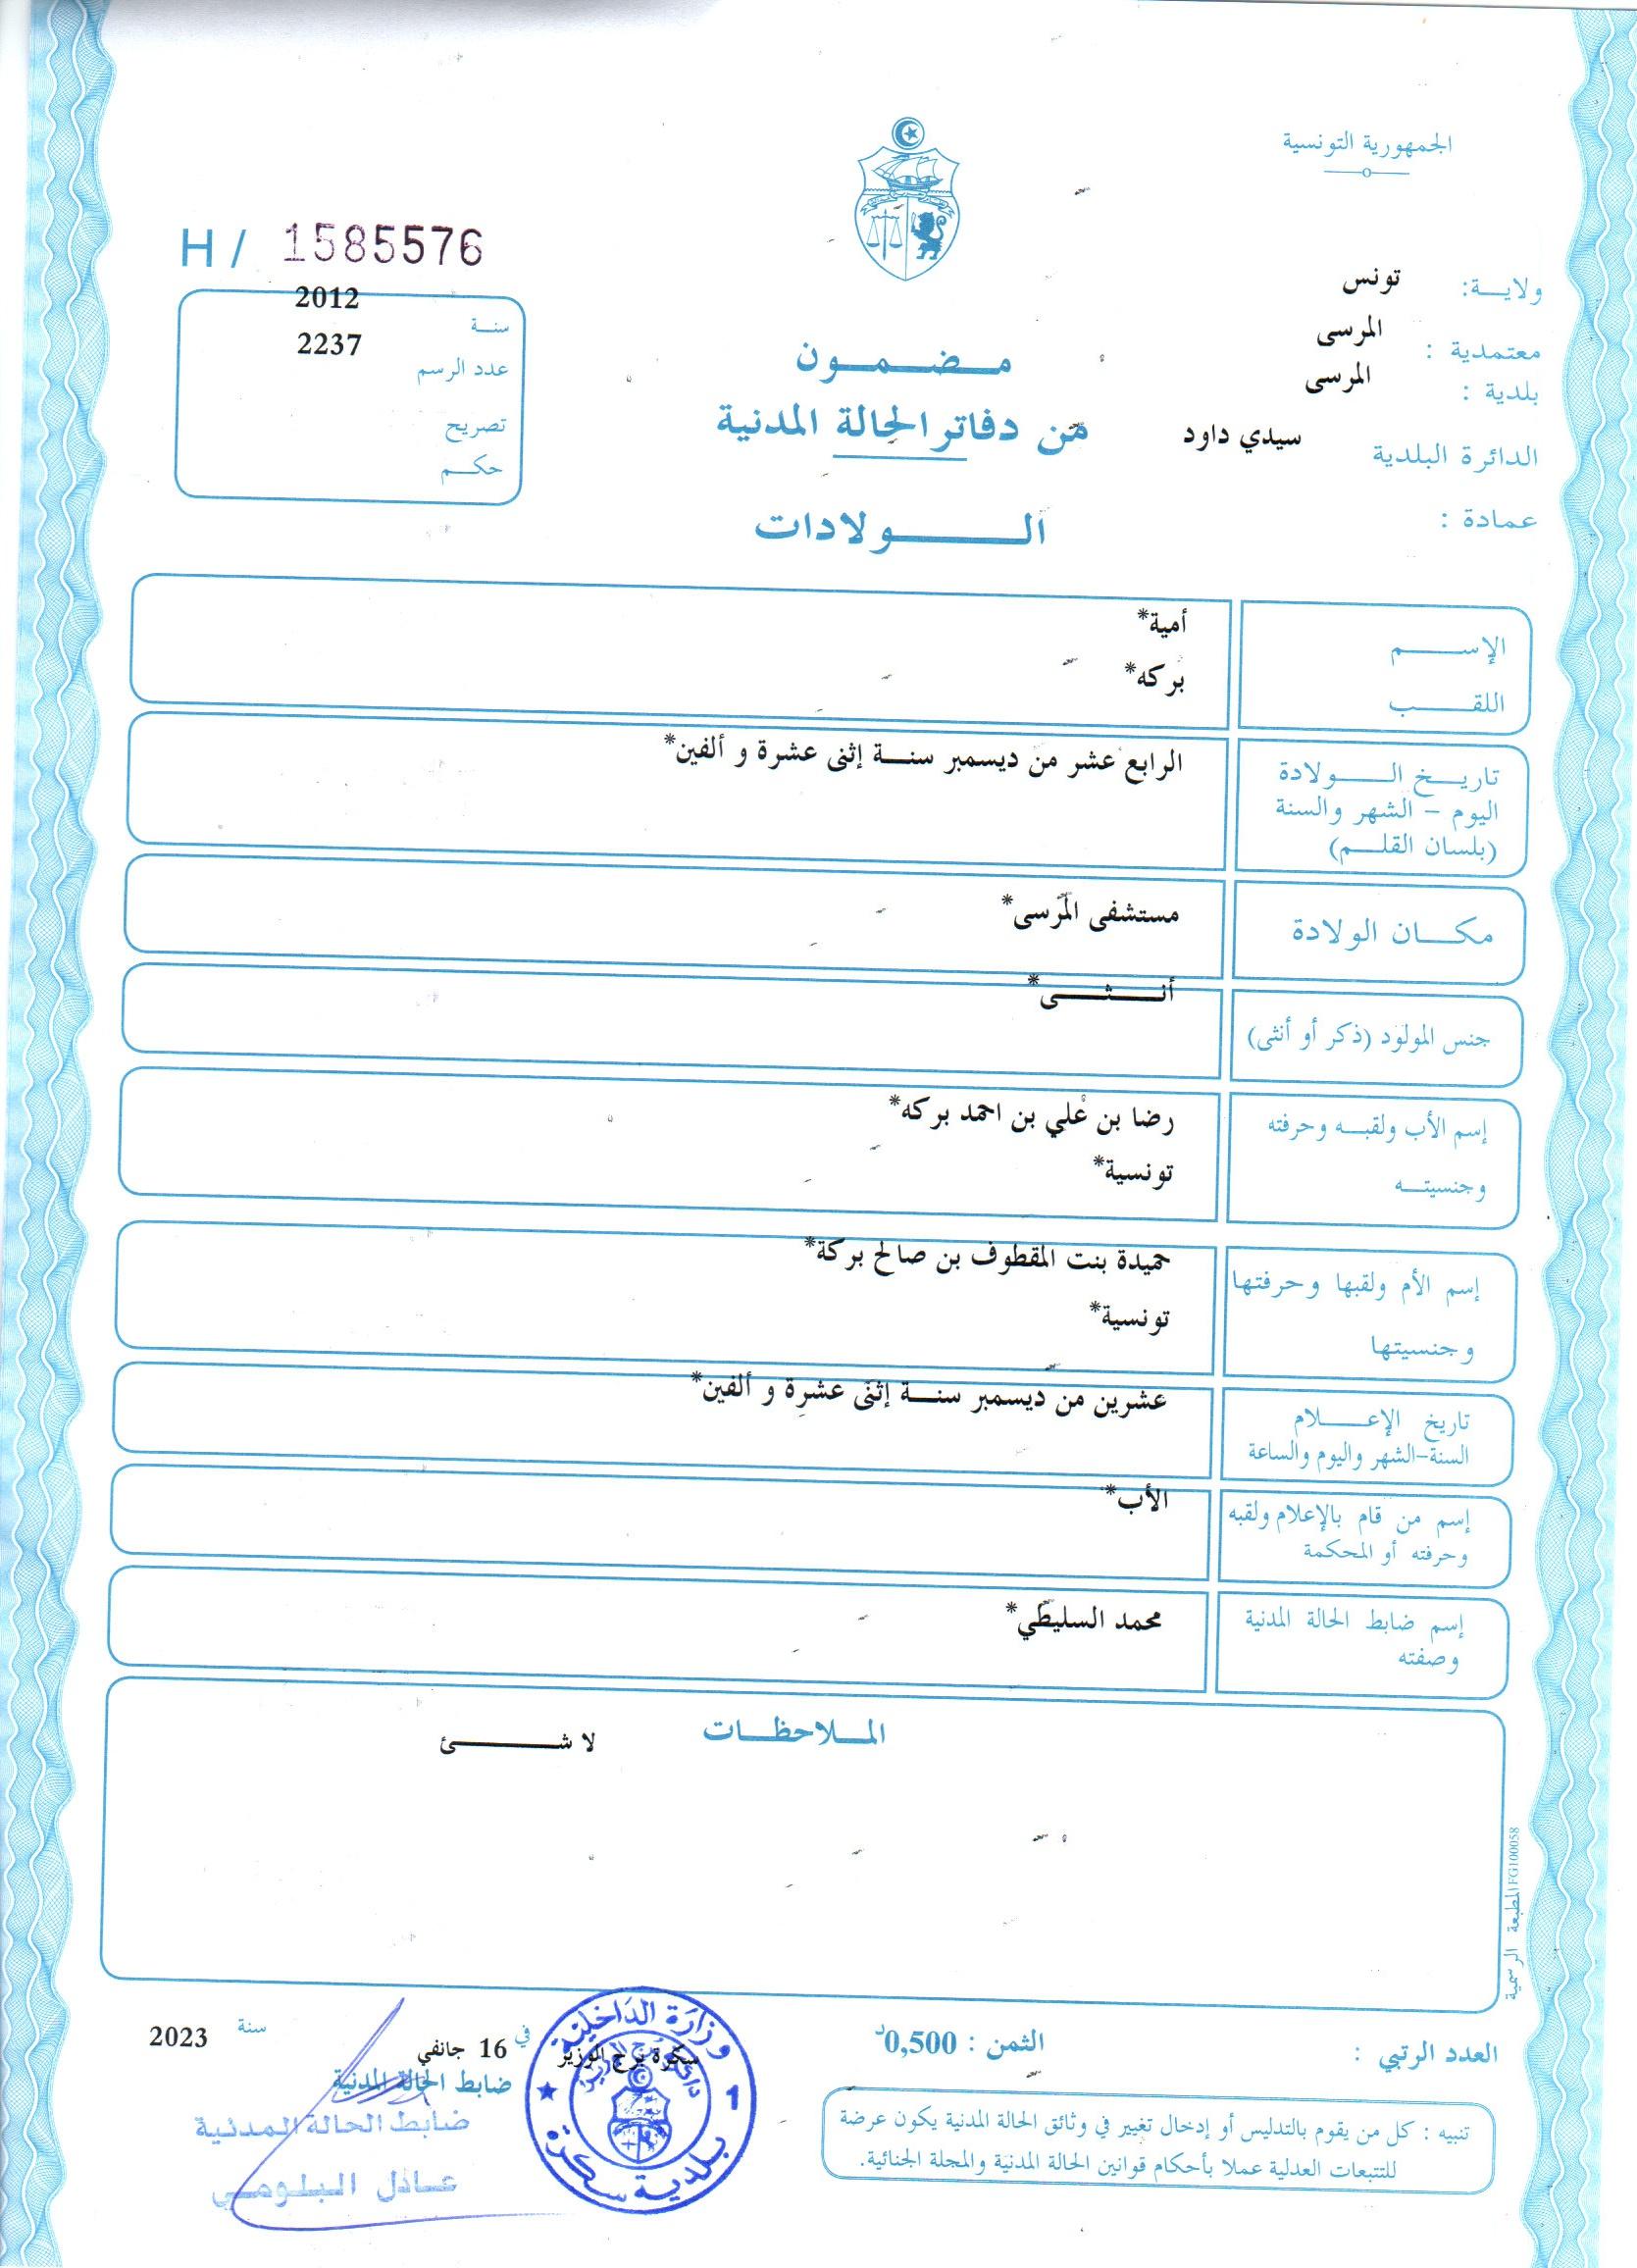 الجمهورية التونسية
H / 1585576
ولايـــة: تونس
معتمدية : المرسى
بلدية : المرسى
الدائرة البلدية سيدي داود
عمادة :
سنــة 2012
عدد الرسم 2237
تصريح
حكــم
مــضــمــون
من دفاتر الحالة المدنية
الــــولادات
الإســــم أمية*
اللقــــب بركه*
تاريــخ الــــولادة الرابع عشر من ديسمبر سنــة إثنى عشرة و ألفين*
اليوم - الشهر والسنة
(بلسان القلــم)
مكــــان الولادة مستشفى المرسى*
جنس المولود (ذكر أو أنثى) أنــــثــــى*
إسم الأب ولقبــه وحرفته رضا بن علي بن احمد بركه*
وجنسيتــه تونسية*
إسم الأم ولقبها وحرفتها حميدة بنت المقطوف بن صالح بركة*
وجنسيتها تونسية*
تاريخ الإعــــلام عشرين من ديسمبر سنــة إثنى عشرة و ألفين*
السنة-الشهر واليوم والساعة
إسم من قام بالإعلام ولقبه الأب*
وحرفته أو المحكمة
إسم ضابط الحالة المدنية محمد السليطي*
وصفته
المــلاحظــات
لا شــــــئ
المطبعة الرسمية FG100058
العدد الرتبي :
الثمن : 0,500د
سكرة برج الوزير في 16 جانفي سنة 2023
ضابط الحالة المدنية
ضابط الحالة المدنية
عادل البلومي
وزارة الداخلية
بلدية سكرة
1
تنبيه : كل من يقوم بالتدليس أو إدخال تغيير في وثائق الحالة المدنية يكون عرضة
للتتبعات العدلية عملا بأحكام قوانين الحالة المدنية والمجلة الجنائية.